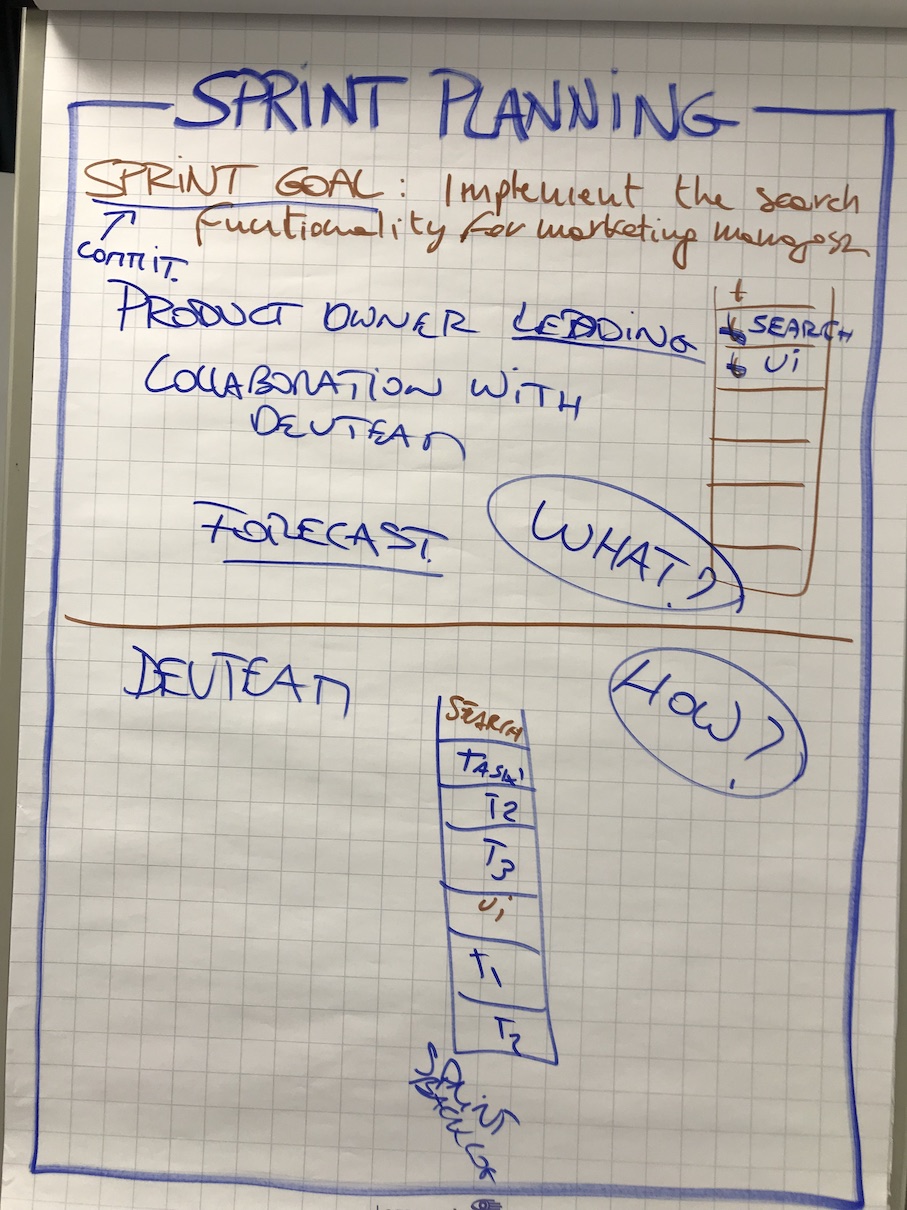 SPRINT PLANNING
SPRINT GOAL: Implement the search
functionality for marketing managers
COMMIT.
PRODUCT OWNER LEADING
COLLABORATION WITH
DEVTEAM
FORECAST.
WHAT?
SEARCH
Ui
DEVTEAM
HOW?
SEARCH
TASK1
T2
T3
Ui
T1
T2
SPRINT
BACKLOG